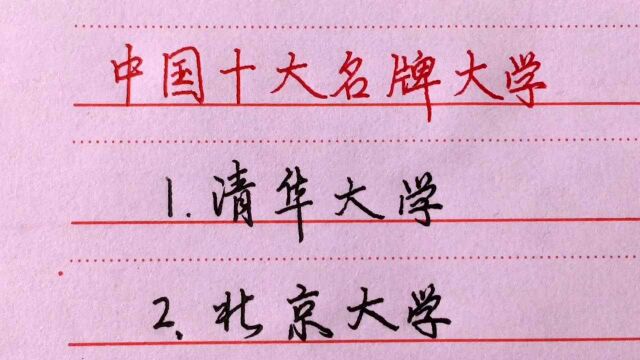 中国十大名牌大学
1.清华大学
2、北京大学